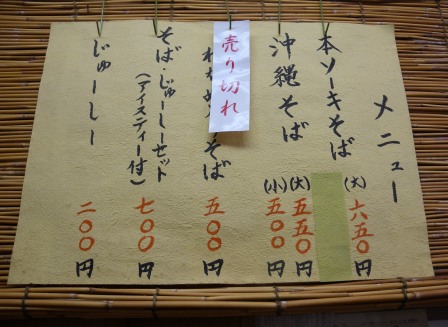 メニュー
本ソーキそば (大) 六五〇円
沖縄そば (大) 五五〇円
(小) 五〇〇円
売り切れ
そば 五〇〇円
そば・じゅーしーセット 七〇〇円
(アイスティー付)
じゅーしー 二〇〇円